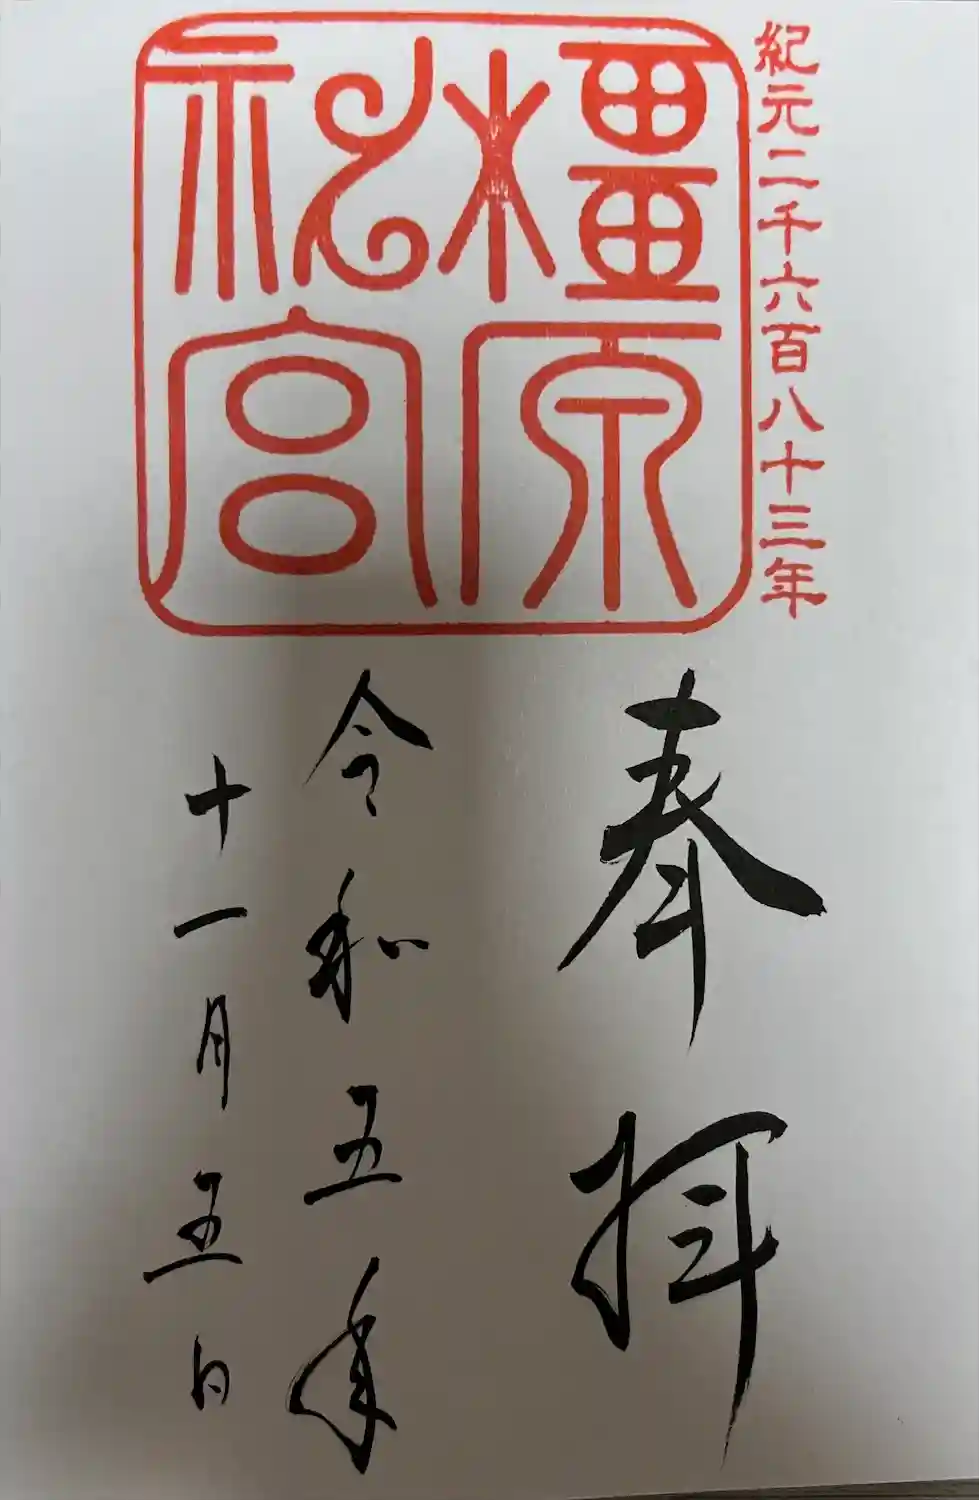 紀元二千六百八十三年
橿原
神宮
奉拝
令和五年
十一月五日